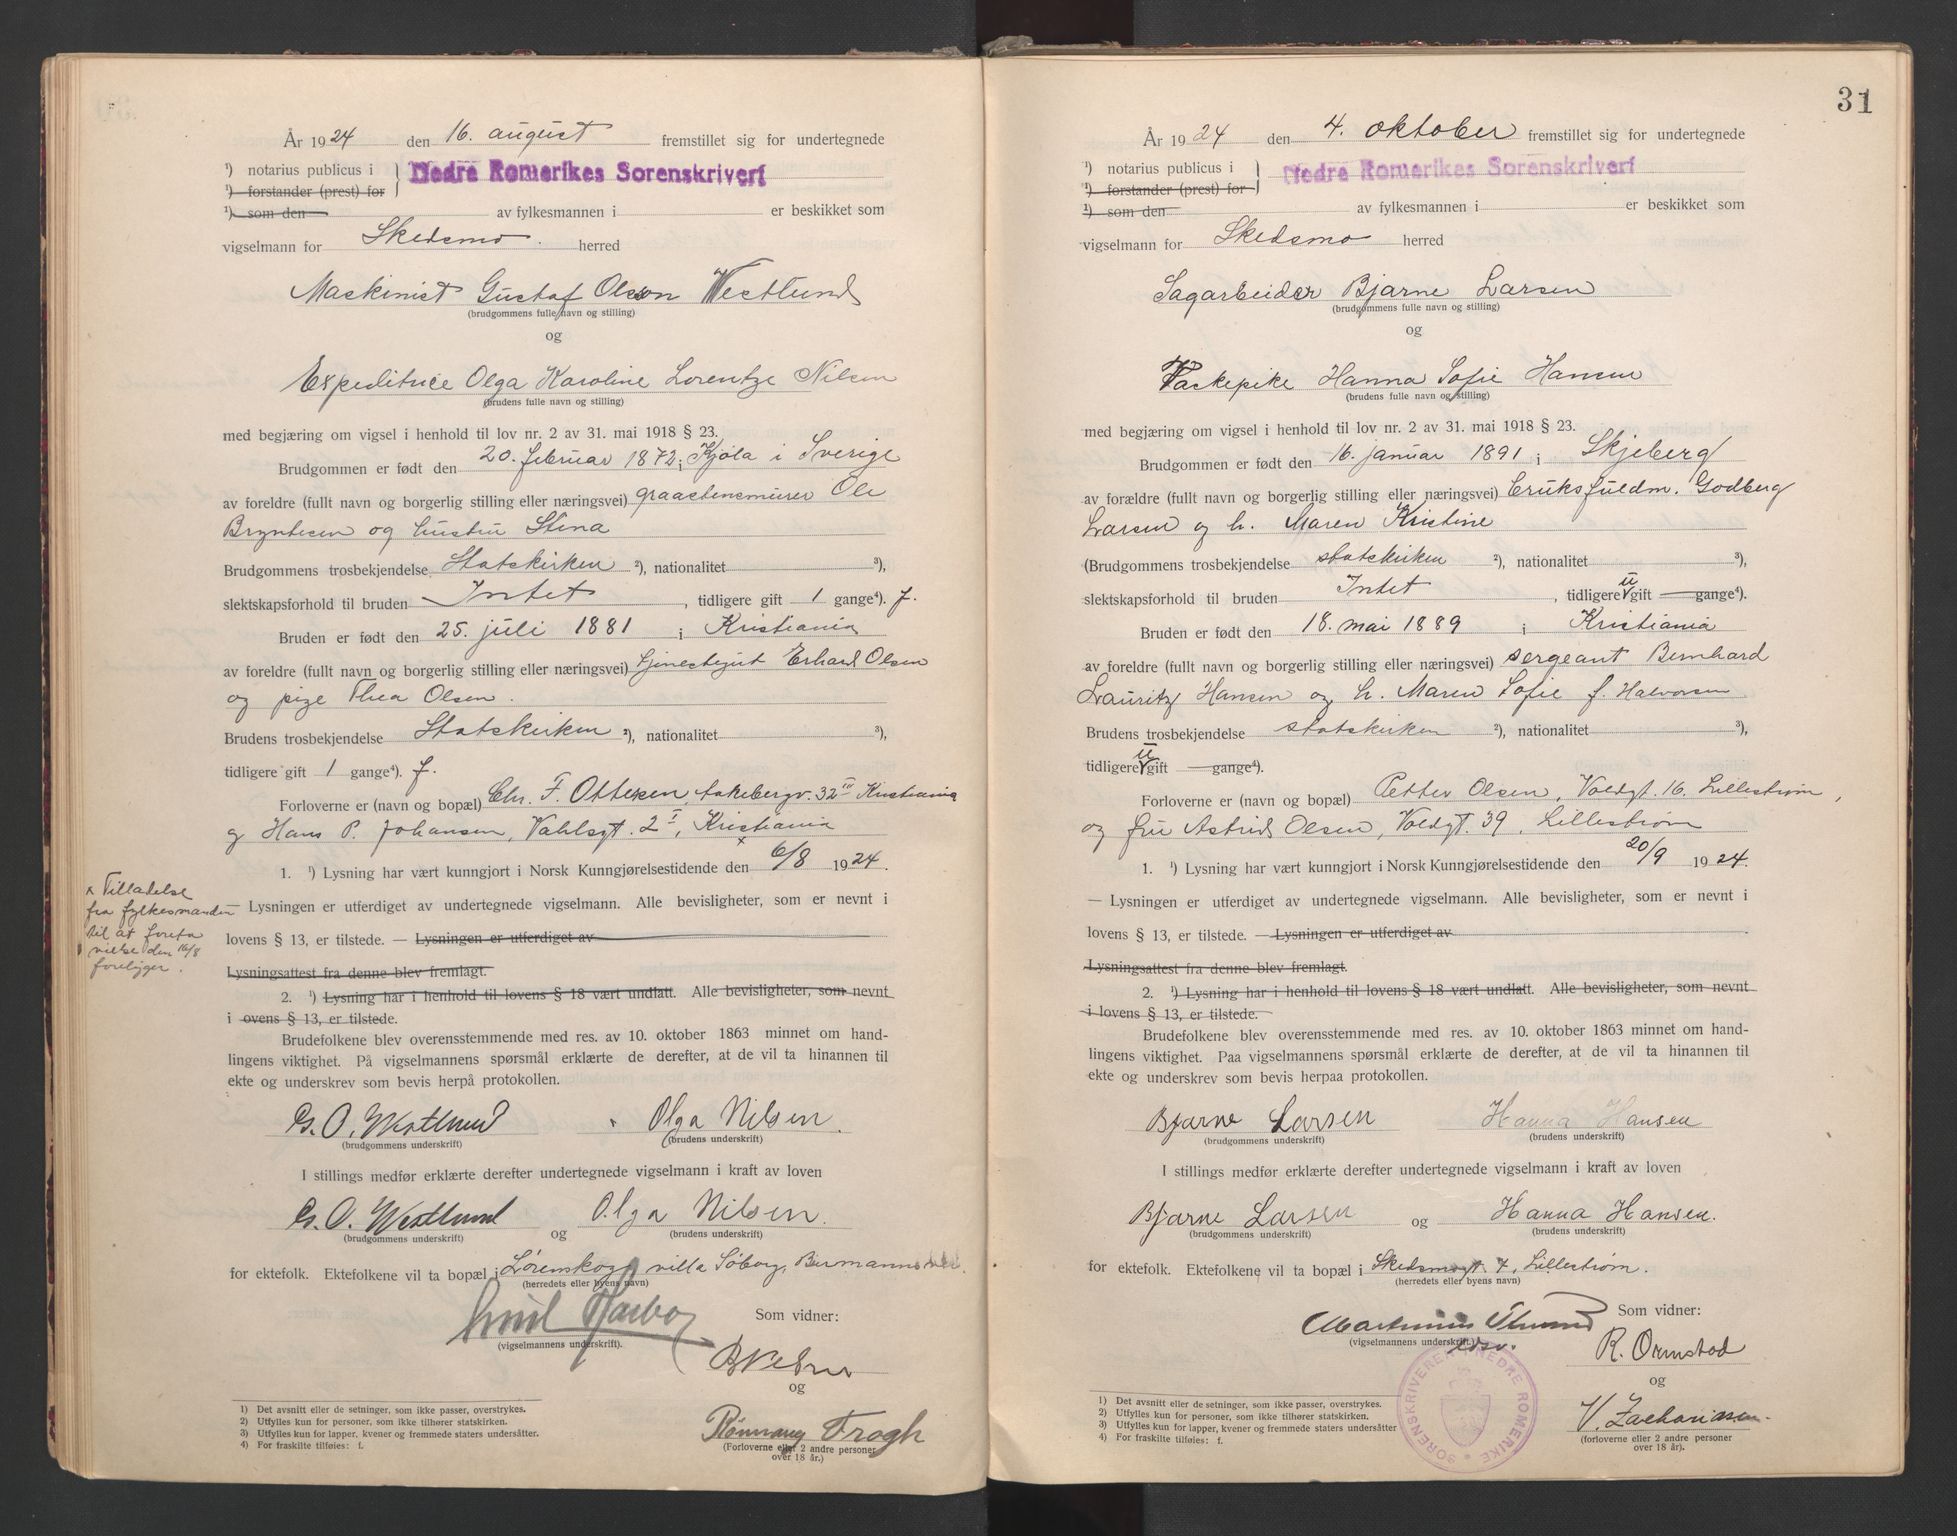 År 1924 den 16. august fremstillet sig for undertegnede
¹) notarius publicus i } Nedre Romerikes Sorenskriveri
¹) forstander (prest) for
¹) som den av fylkesmannen i er beskikket som
vigselmann for Skedsmo. herred
Maskinist Gustaf Olsson Westlund
(brudgommens fulle navn og stilling)
og
Expeditrice Olga Karoline Lorentze Nilsen
(brudens fulle navn og stilling)
med begjæring om vigsel i henhold til lov nr. 2 av 31. mai 1918 § 23.
Brudgommen er født den 20. februar 1872 i Kjöla i Sverige
av foreldre (fullt navn og borgerlig stilling eller næringsvei) graastensmurer Ole
Bryntesen og hustru Stina
Brudgommens trosbekjendelse Statskirken ²), nationalitet ³),
slektskapsforhold til bruden Intet, tidligere gift 1 gange⁴). f.
Bruden er født den 25. juli 1881 i Kristiania
av foreldre (fullt navn og borgerlig stilling eller næringsvei) tjenestegut Erhard Olsen
og pige Thea Olsen.
Brudens trosbekjendelse Statskirken ²), nationalitet ³),
tidligere gift 1 gange⁴). f.
Forloverne er (navn og bopæl) Chr. F. Ottesen, Aakebergv. 32 III Kristiania
og Hans P. Johansen, Vahlsgt. 2 I, Kristiania
×
1. ¹) Lysning har vært kunngjort i Norsk Kunngjørelsestidende den 6/8 1924.
× Tilladelse
fra fylkesmanden
til at foreta
vielse den 16/8
foreligger.
— Lysningen er utferdiget av undertegnede vigselmann. Alle bevisligheter, som er nevnt i
lovens § 13, er tilstede. — Lysningen er utferdiget av
Lysningsattest fra denne blev fremlagt.
2. ¹) Lysning har i henhold til lovens § 18 vært undlatt. Alle bevisligheter, som nevnt
i ovens § 13, er tilstede.
Brudefolkene blev overensstemmende med res. av 10. oktober 1863 minnet om hand-
lingens viktighet. På vigselmannens spørsmål erklærte de derefter, at de vil ta hinannen til
ekte og underskrev som bevis herpå protokollen.
G. O. Westlund Olga Nilsen.
(brudgommens underskrift) (brudens underskrift)
I stillings medfør erklærte derefter undertegnede vigselmann i kraft av loven
G. O. Westlund og Olga Nilsen.
(brudgommens underskrift) (brudens underskrift)
for ektefolk. Ektefolkene vil ta bopæl i Lørenskog, villa Solborg,
(herredets eller byens navn)
Som vidner:
(vigselmannens underskrift).
og
Rønnaug Trogh
(Forloverne eller 2 andre personer
over 18 år.)
1) Det avsnitt eller de setninger, som ikke passer, overstrykes.
2) Utfylles kun for personer, som ikke tilhører statskirken.
3) Utfylles kun for lapper, kvener og fremmede staters undersåtter.
4) For fraskilte tilføies: f.
31
År 1924 den 4. oktober fremstillet sig for undertegnede
¹) notarius publicus i } Nedre Romerikes Sorenskriveri
¹) forstander (prest) for
¹) som den av fylkesmannen i er beskikket som
vigselmann for Skedsmo herred
Sagarbeider Bjarne Larsen
(brudgommens fulle navn og stilling)
og
Vaskepike Hanna Sofie Hansen
(brudens fulle navn og stilling)
med begjæring om vigsel i henhold til lov nr. 2 av 31. mai 1918 § 23.
Brudgommen er født den 16. januar 1891 i Skjeberg
av forældre (fullt navn og borgerlig stilling eller næringsvei) bruksfuldm. Godberg
Larsen og h. Maren Kristine
(Brudgommens trosbekjendelse statskirken ²), nationalitet ³),
slektskapsforhold til bruden Intet, tidligere u gift gange⁴).
Bruden er født den 18. mai 1889 i Kristiania
av foreldre (fullt navn og borgerlig stilling eller næringsvei) sergeant Bernhard
Lauritz Hansen og h. Maren Sofie f. Halvorsen
Brudens trosbekjendelse statskirken ²), nationalitet ³),
tidligere u gift gange⁴).
Forloverne er (navn og bopæl) Petter Olsen, Voldgt. 16, Lillestrøm,
og fru Astrid Olsen, Voldgt. 39, Lillestrøm
1. ¹) Lysning har vært kunngjort i Norsk Kunngjørelsestidende den 20/9 1924.
— Lysningen er utferdiget av undertegnede vigselmann. Alle bevisligheter, som er nevnt i
lovens § 13, er tilstede. — Lysningen er utferdiget av
Lysningsattest fra denne blev fremlagt.
2. ¹) Lysning har i henhold til lovens § 18 vært undlatt. Alle bevisligheter, som nevnt
i lovens § 13, er tilstede.
Brudefolkene blev overensstemmende med res. av 10. oktober 1863 minnet om hand-
lingens viktighet. Paa vigselmannens spørsmål erklærte de derefter, at de vil ta hinannen til
ekte og underskrev som bevis herpaa protokollen.
Bjarne Larsen Hanna Hansen
(brudgommens underskrift) (brudens underskrift)
I stillings medfør erklærte derefter undertegnede vigselmann i kraft av loven
Bjarne Larsen og Hanna Hansen.
(brudgommens underskrift) (brudens underskrift)
for ektefolk. Ektefolkene vil ta bopæl i Skedsmogt. 7, Lillestrøm.
(herredets eller byens navn)
Som vidner:
(vigselmannens underskrift)
edsv.
R. Ormstad
og
V. Zachariasen
(forloverne eller 2 andre personer
over 18 år).
SORENSKRIVEREN I NEDRE ROMERIKE
1) Det avsnitt eller de setninger, som ikke passer, overstrykes.
2) Utfylles kun for personer, som ikke tilhører statskirken.
3) Utfylles kun for lapper, kvener og fremmede staters undersåtter
4) For fraskilte tilføies: f.